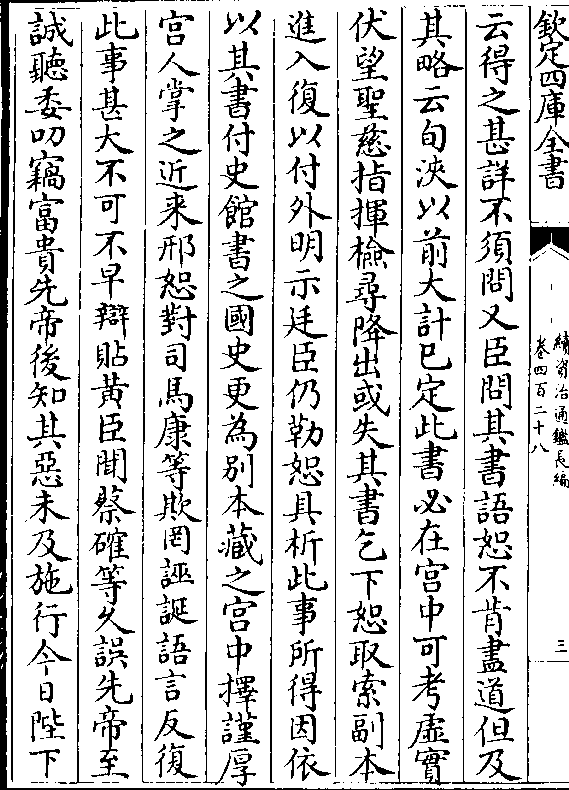 欽定四庫全書
續資治通鑑長編
卷四百二十八
三
云得之甚詳不須問又臣問其書語恕不肯盡道但及
其略云旬浹以前大計已定此書必在宮中可考虛實
伏望聖慈指揮檢尋降出或失其書乞下恕取索副本
進入復以付外明示廷臣仍勒恕具析此事所得因依
以其書付史館書之國史更為別本藏之宮中擇謹厚
宮人掌之近来邢恕對司馬康等欺罔誣誕語言反復
此事甚大不可不早辯貼黃臣聞蔡確等乆誤先帝至
誠聽委叨竊富貴先帝後知其惡未及施行今日陛下